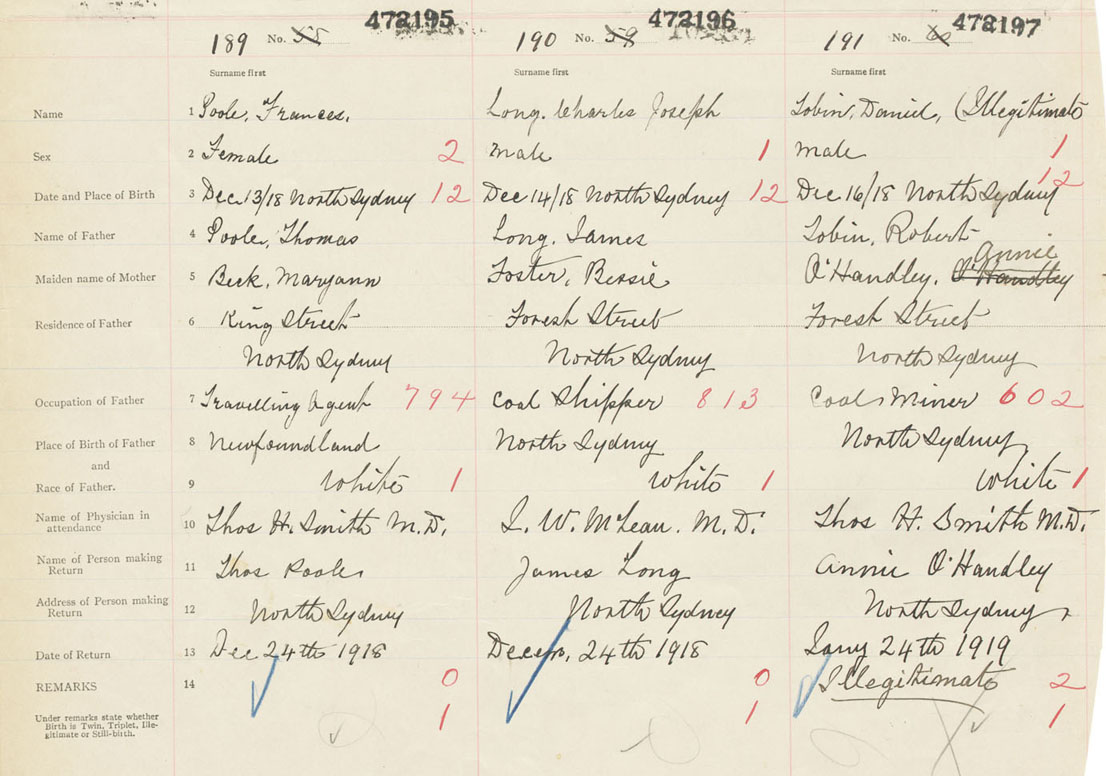 472195 472196 472197
189 No. 55 190 No. 59 191 No. 60
Surname first Surname first Surname first
Name 1 Poole, Frances, Long, Charles Joseph Tobin, Daniel, (Illegitimate
Sex 2 Female 2 Male 1 Male 1
Date and Place of Birth 3 Dec 13/18 North Sydney 12 Dec 14/18 North Sydney 12 Dec 16/18 North Sydney 12
Name of Father 4 Poole, Thomas Long, James Tobin, Robert
Annie
Maiden name of Mother 5 Beck, Maryann Foster, Bessie O'Handley, O'Handley
Residence of Father 6 King Street Foresh Street Foresh Street
North Sydney North Sydney North Sydney
Occupation of Father 7 Travelling Agent 794 Coal Shipper 813 Coal Miner 602
Place of Birth of Father 8 Newfoundland North Sydney North Sydney
and
Race of Father. 9 White 1 White 1 White 1
Name of Physician in
attendance 10 Thos H. Smith M.D. L. W. McLean. M.D. Thos H. Smith M.D.
Name of Person making
Return 11 Thos Poole James Long Annie O'Handley
Address of Person making
Return 12 North Sydney North Sydney North Sydney
Date of Return 13 Dec 24th 1918 24th 1918 Jany 24th 1919
REMARKS 14 0 0 Illegitimate 2
Under remarks state whether
Birth is Twin, Triplet, Ille-
gitimate or Still-birth. 1 1 1